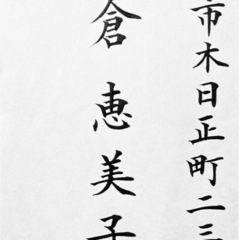 市木日正町二三
倉恵美子